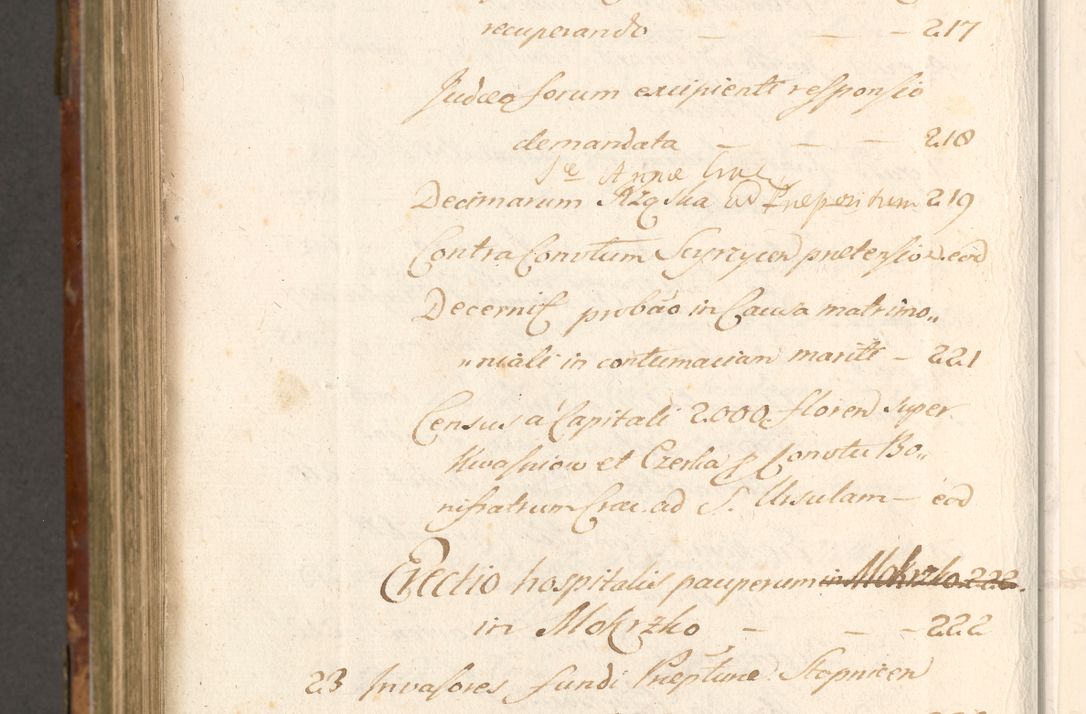 recuperando — — — 217
Judæo forum excipienti responsio
demandata — — — 218
Stæ Annæ Crac.
Decimarum Rząska ad Præpositum 219
Contra Convtum Scyrzycen prætension. eod
Decernit probao in Causa matrimo„
„niali in contumaciam mariti — 221
Census a Capitali 2000. floren super
Kwasniow et Czerha p Convtu Bo„
nifratrum Crac. ad S. Ursulam — eod
Erectio hospitalis pauperum in Mokrzko 222.
in Mokrzko — — — 222
23 Invasores fundi Præpturæ Stopnicen